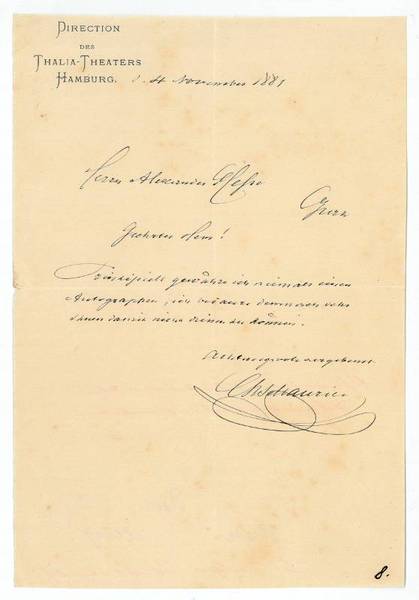 DIRECTION
DES
THALIA-THEATERS
HAMBURG.
d. 4 November 1881
Herrn Alexander Hesse
Gera
Geehrter Herr!
Principiell gewähre ich niemals einen
Autographen, ich bedaure demnach sehr
Ihnen damit nicht dienen zu können.
Achtungsvoll ergebenst
Maurice
8.